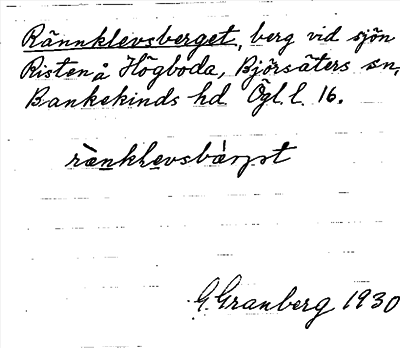 Rännklevsberget, berg vid sjön
Risten å Högboda, Björsäters sn,
Bankekinds hd Ögl. l. 16.
rànklevsbàrjət
G. Granberg 1930